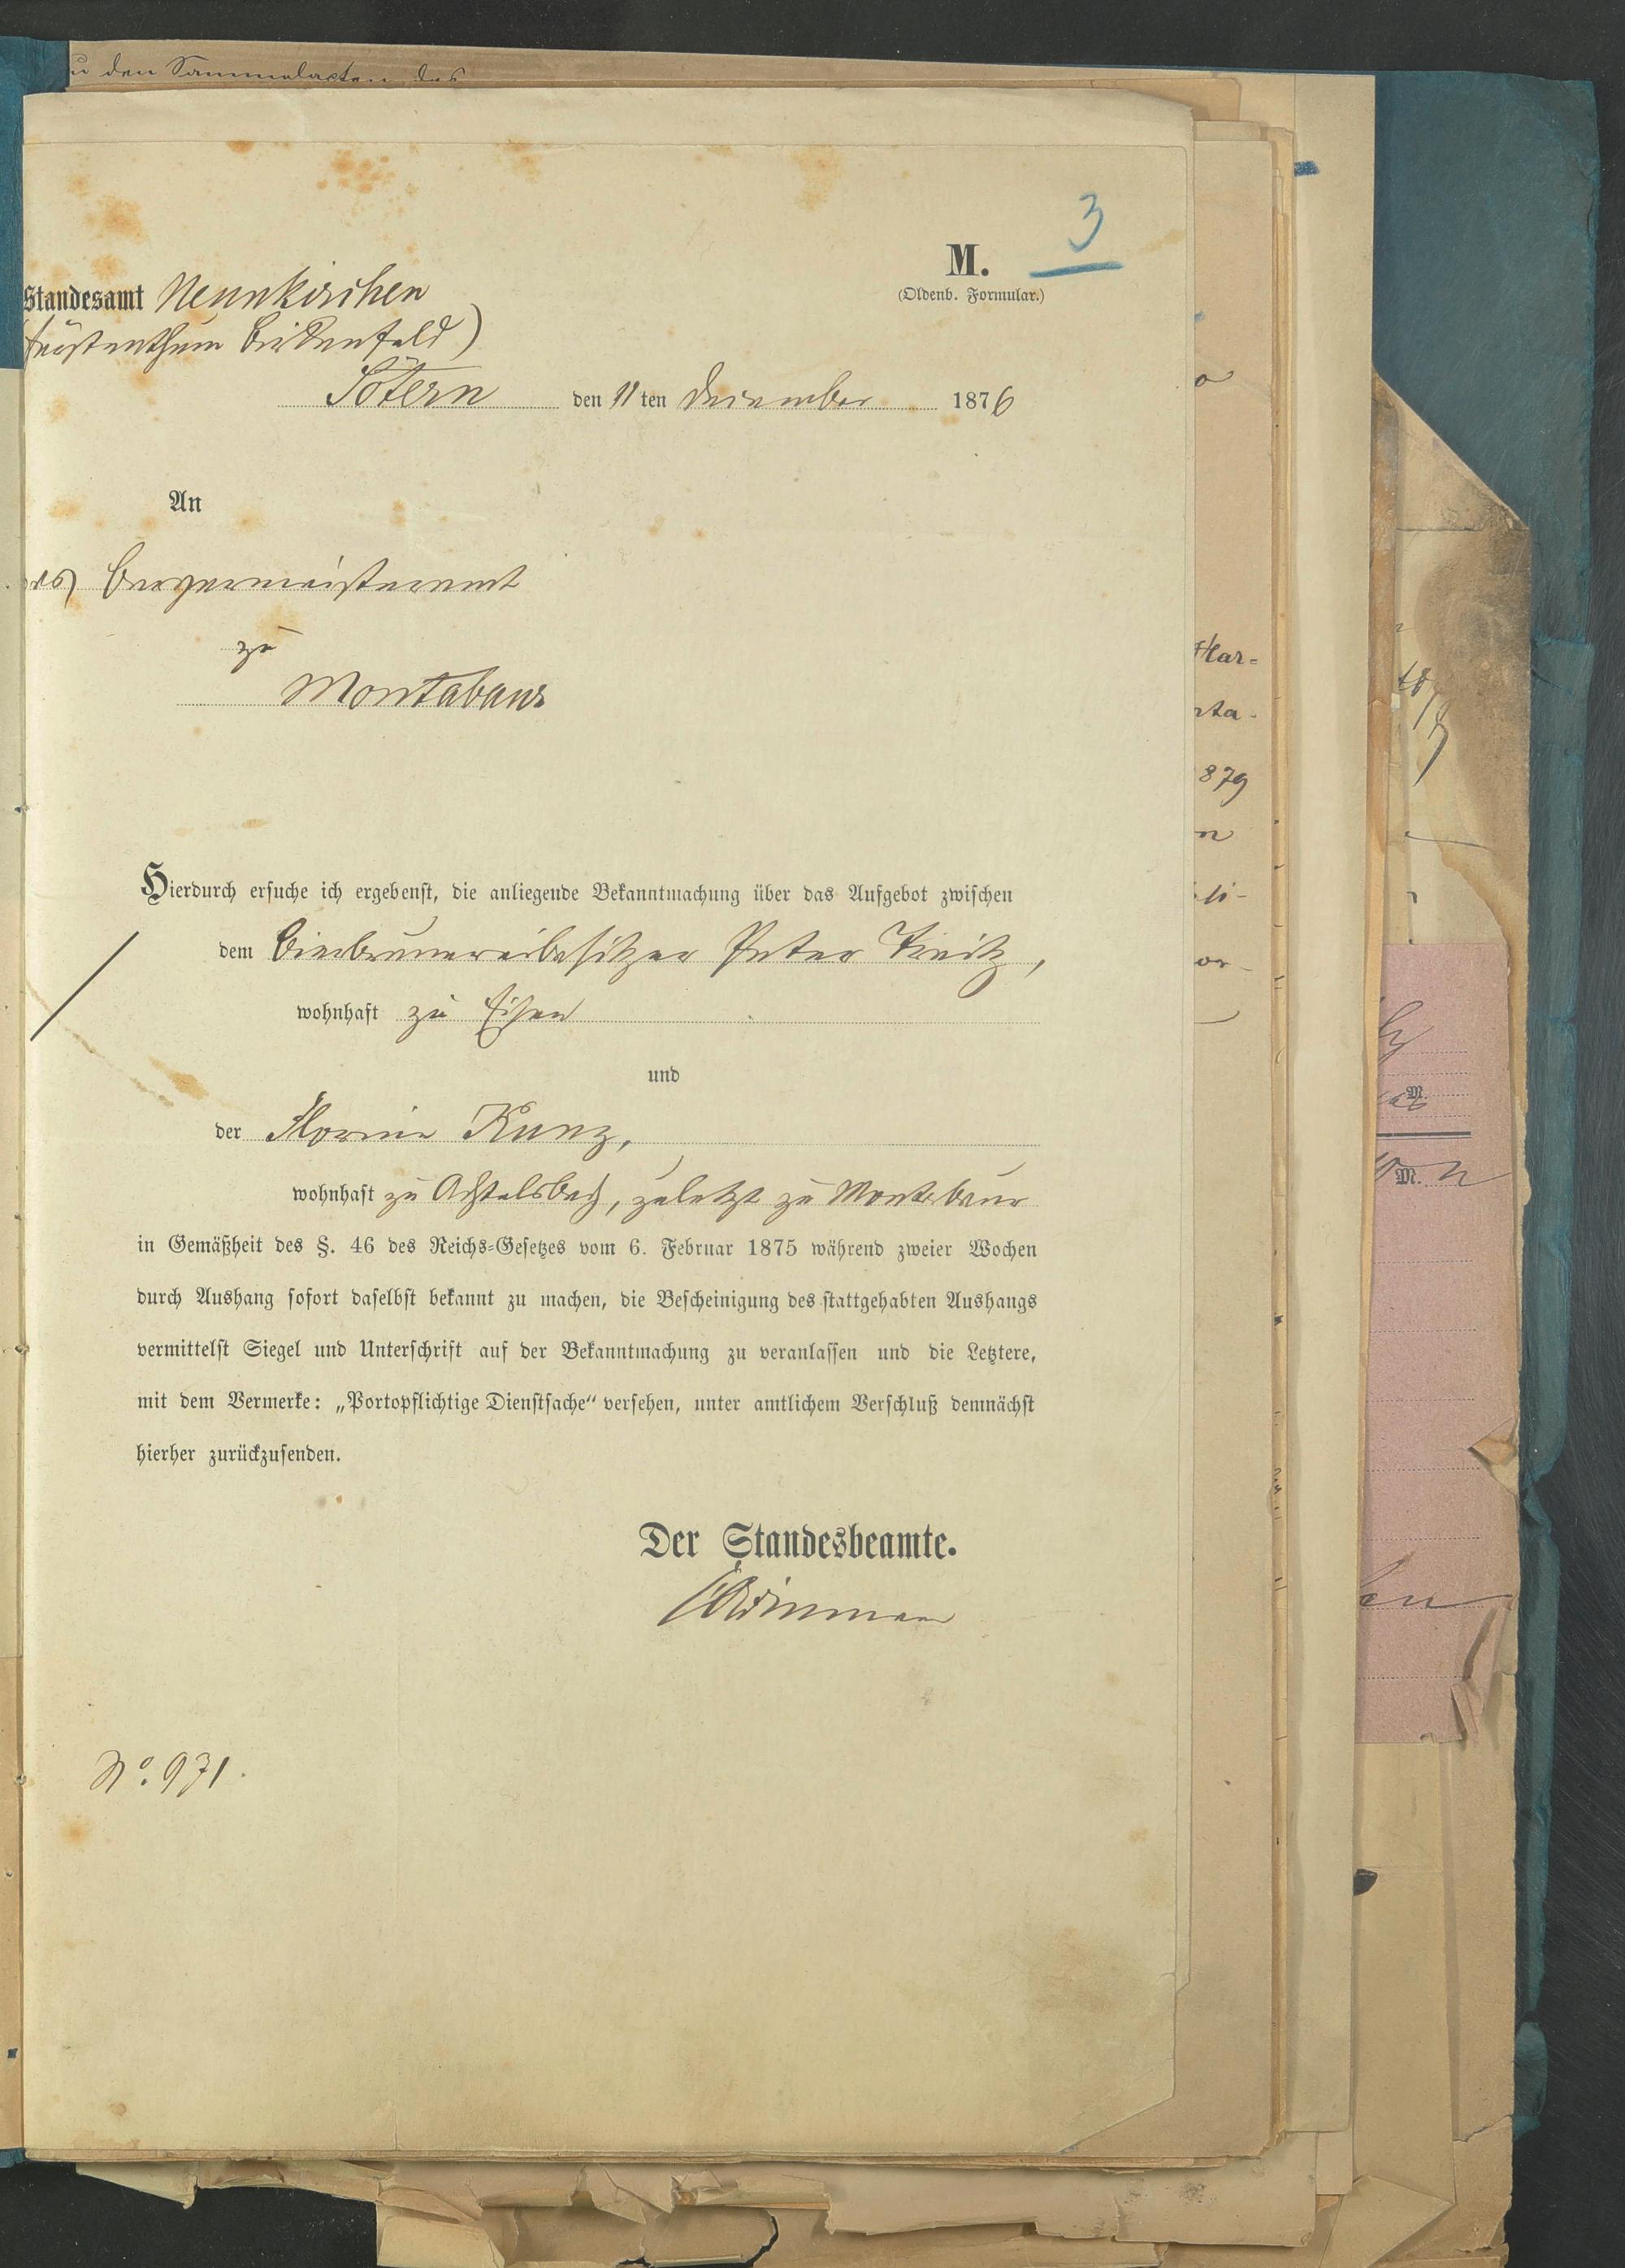 u den Sammelacten des
M. 3
(Oldenb. Formular.)
Standesamt Neunkirchen
Fürstenthum Birkenfeld)
Sötern den 11 ten Dezember 1876
An
das Bürgermeisteramt
zu
Montabaur
Hierdurch ersuche ich ergebenst, die anliegende Bekanntmachung über das Aufgebot zwischen
dem Bierbrauereibesitzer Peter Treitz,
wohnhaft zu Eisen
und
der Florine Kunz,
wohnhaft zu Achtelsbach, zuletzt zu Montabaur
in Gemäßheit des §. 46 des Reichs=Gesetzes vom 6. Februar 1875 während zweier Wochen
durch Aushang sofort daselbst bekannt zu machen, die Bescheinigung des stattgehabten Aushangs
vermittelst Siegel und Unterschrift auf der Bekanntmachung zu veranlassen und die Letztere,
mit dem Vermerke: „Portopflichtige Dienstsache“ versehen, unter amtlichem Verschluß demnächst
hierher zurückzusenden.
Der Standesbeamte.
No. 971.
Har=
rta-
879
M.
M.